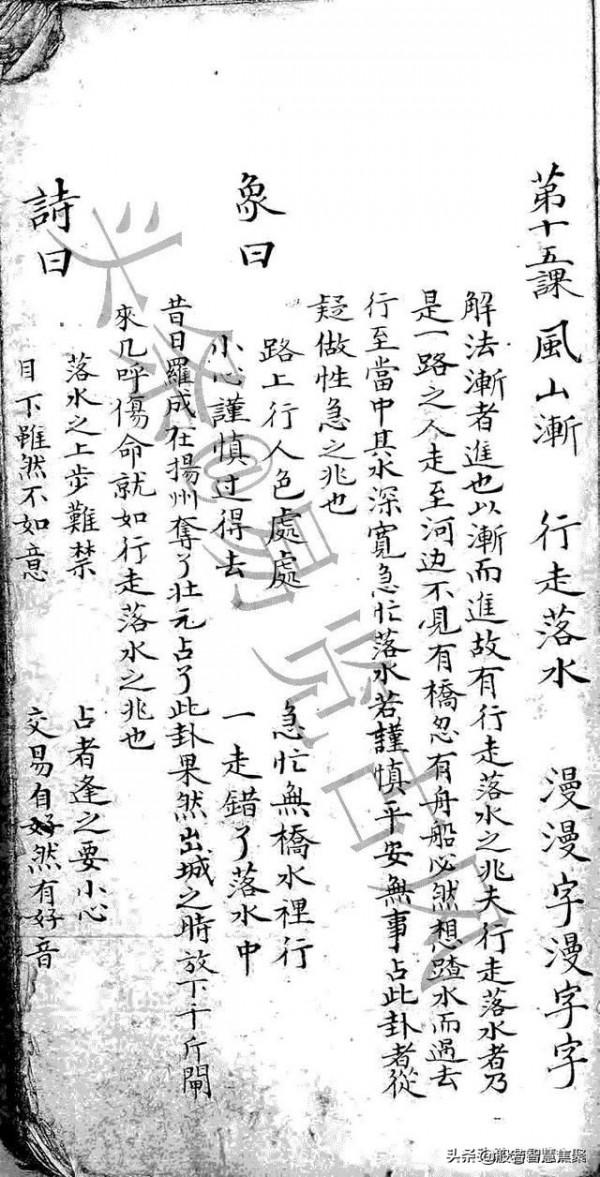 第十五課 風山漸 行走落水 漫漫字漫字字
解法漸者進也以漸而進故有行走落水之兆夫行走落水者乃
是一路之人走至河边不見有橋忽有舟船必然想蹅水而過去
行至當中其水深寬急忙落水若謹慎平安無事占此卦者從
疑做性急之兆也
象曰
路上行人色處處 急忙無橋水裡行
小心謹慎过得去 一走錯了落水中
昔日羅成在揚州奪了壮元占了此卦果然出城之時放下千斤閘
來几呼傷命就如行走落水之兆也
詩曰
落水之上步難禁 占者逢之要小心
目下雖然不如意 交易自然有好音
头条@般若智慧焦聚